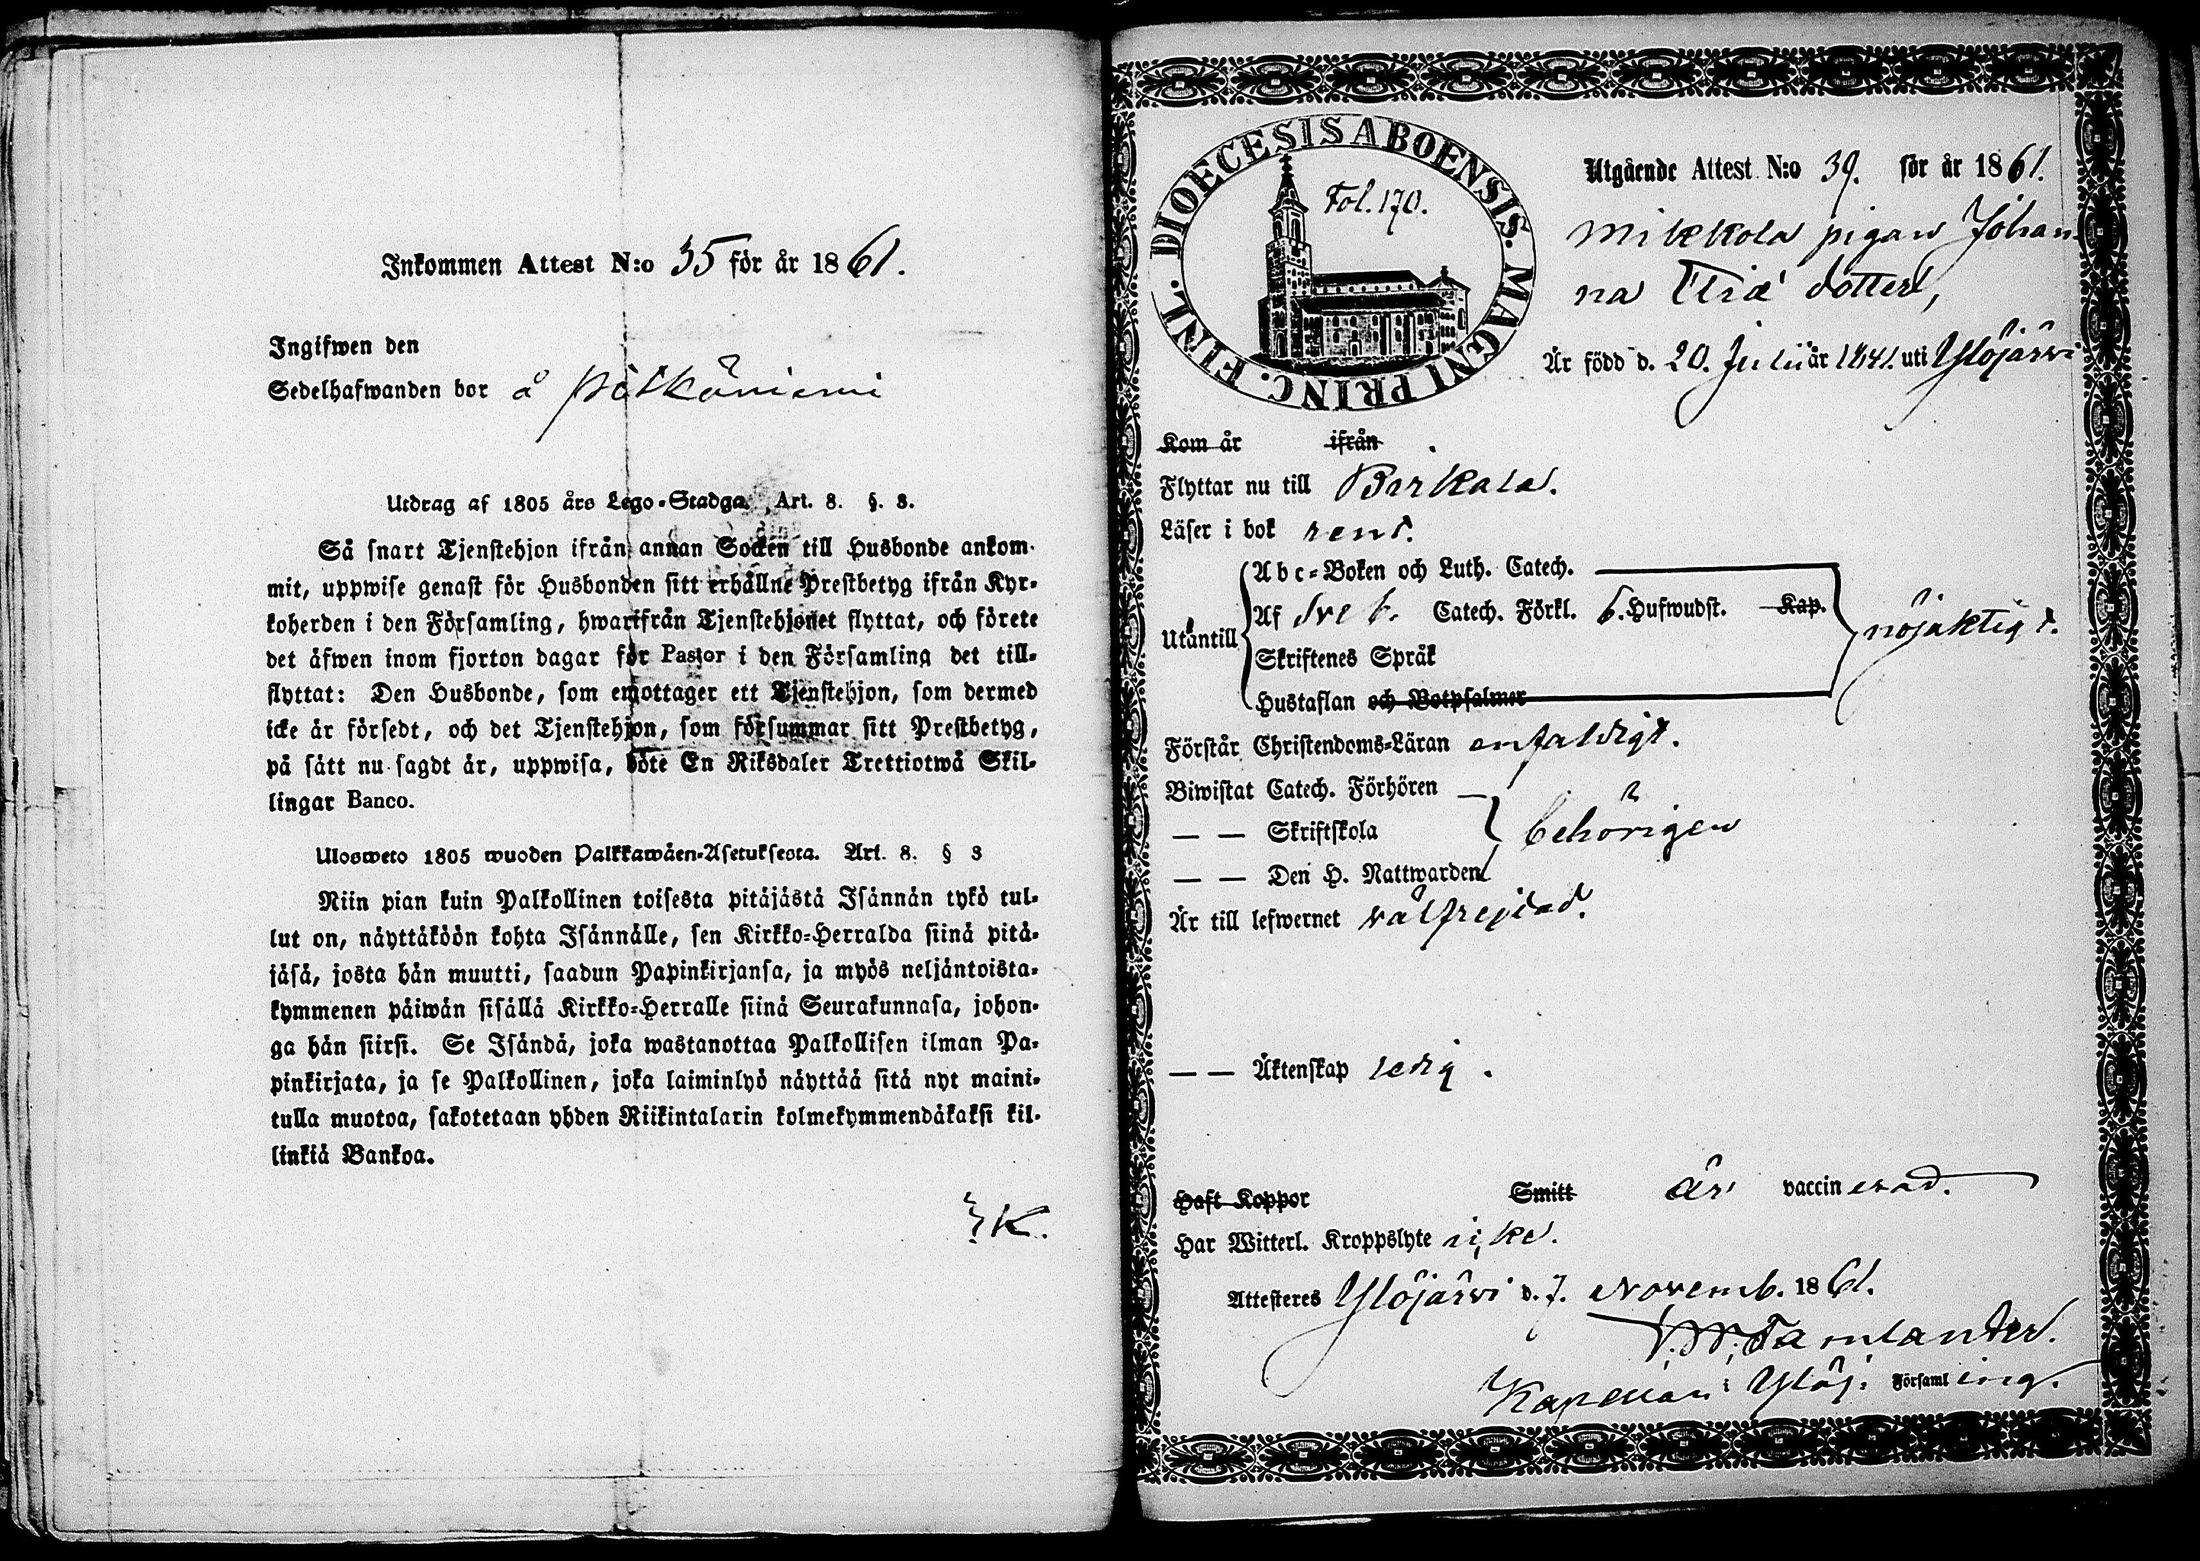 Inkommen Attest N:o 35 för år 1861.
Ingifwen den
Sedelhafwanden bor å Pölkäniemi
Utdrag af 1805 års Lego-Stadga. Art. 8. §. 3.
Så snart Tjenstehjon ifrån annan Socken till Husbonde ankom-
mit, uppwise genast för Husbonden sitt erhållne Prestbetyg ifrån Kyr-
koherden i den Församling, hwarifrån Tjenstehjonet flyttat, och förete
det äfwen inom fjorton dagar för Pastor i den Församling det till-
flyttat: Den Husbonde, som emottager ett Tjenstehjon, som dermed
icke är försedt, och det Tjenstehjon, som försummar sitt Prestbetyg,
på sätt nu sagdt är, uppwisa, böte En Riksdaler Trettiotwå Skil-
lingar Banco.
Ulosweto 1805 wuoden Palkkawäen-Asetuksesta. Art. 8. § 3
Niin pian kuin Palkollinen toisesta pitäjästä Isännän tykö tul-
lut on, näyttäköön kohta Isännälle, sen Kirkko-Herralda siinä pitä-
jäsä, josta hän muutti, saadun Papinkirjansa, ja myös neljäntoista-
kymmenen päiwän sisällä Kirkko-Herralle siinä Seurakunnasa, johon-
ga hän siirsi. Se Isändä, joka wastanottaa Palkollisen ilman Pa-
pinkirjata, ja se Palkollinen, joka laiminlyö näyttää sitä nyt maini-
tulla muotoa, sakotetaan yhden Riikintalarin kolmekymmendäkaksi kil-
linkiä Bankoa.
K.
DIOECESIS ABOENSIS. MAGNI PRINC. FINL.
Fol. 170.
Utgående Attest N:o 39. för år 1861.
Mikkola pigan Johan-
na Eliæ dotter,
Är född d. 20. Julii år 1841. uti Ylöjärwi
Kom år ifrån
Flyttar nu till Birkala.
Läser i bok rent.
Utantill
Abc-Boken och Luth. Catech.
Af Sveb. Catech. Förkl. 6. Hufwudst. Kap.
Skriftenes Språk
Hustaflan och Botpsalmer
nöjaktigt.
Förstår Christendoms-Läran enfaldigt.
Biwistat Catech. Förhören
— — Skriftskola behörigen
— — Den H. Nattwarden
Är till lefwernet välfrejdad.
— — Äktenskap ledig.
Haft Koppor Smitt är vaccinerad.
Har Witterl. Kroppslyte icke.
Attesteres Ylöjärwi d. 7. Novemb. 1861.
Tamlander.
Kapellan i Ylöj. Församling.